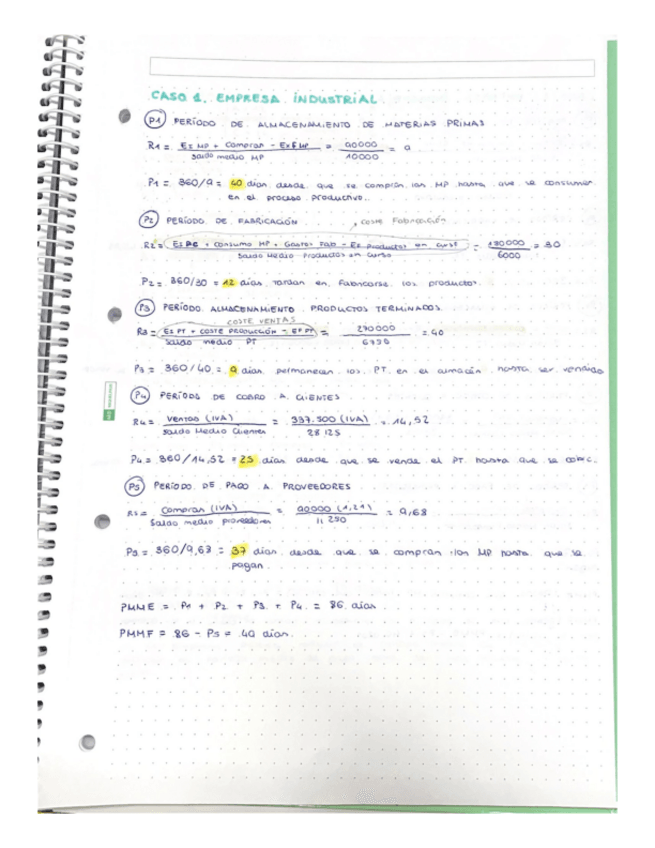 CASO 1. EMPRESA INDUSTRIAL
P1 PERÍODO DE ALMACENAMIENTO DE MATERIAS PRIMAS
R1 = Ei MP + Compras - Ex F MP / Saldo medio MP = 90000 / 10000 = 9
P1 = 360/9 = 40 días desde que se compran las MP hasta que se consumen
en el proceso productivo.
P2 PERÍODO DE FABRICACIÓN → COSTE FABRICACIÓN
R2 = Ei PC + Consumo MP + Gastos Fab - Ex productos en curso / Saldo Medio Productos en curso = 180000 / 6000 = 30
P2 = 360/30 = 12 días tardan en fabricarse los productos
P3 PERÍODO ALMACENAMIENTO PRODUCTOS TERMINADOS
COSTE VENTAS
R3 = Ei PT + COSTE PRODUCCIÓN - EF PT / Saldo medio PT = 270000 / = 40
P3 = 360/40 = 9 días permanecen los PT en el almacén hasta ser vendido
P4 PERÍODO DE COBRO A CLIENTES
R4 = Ventas (IVA) / Saldo Medio Clientes = 337.500 (IVA) / 28125 = 14,52
P4 = 360/14,52 = 25 días desde que se vende el PT hasta que se cobra.
P5 PERÍODO DE PAGO A PROVEEDORES
R5 = Compras (IVA) / Saldo medio proveedores = 90000 (1,21) / 11250 = 9,68
P5 = 360/9,68 = 37 días desde que se compran las MP hasta que se
pagan
PMME = P1 + P2 + P3 + P4 = 86 días
PMMF = 86 - P5 = 49 días